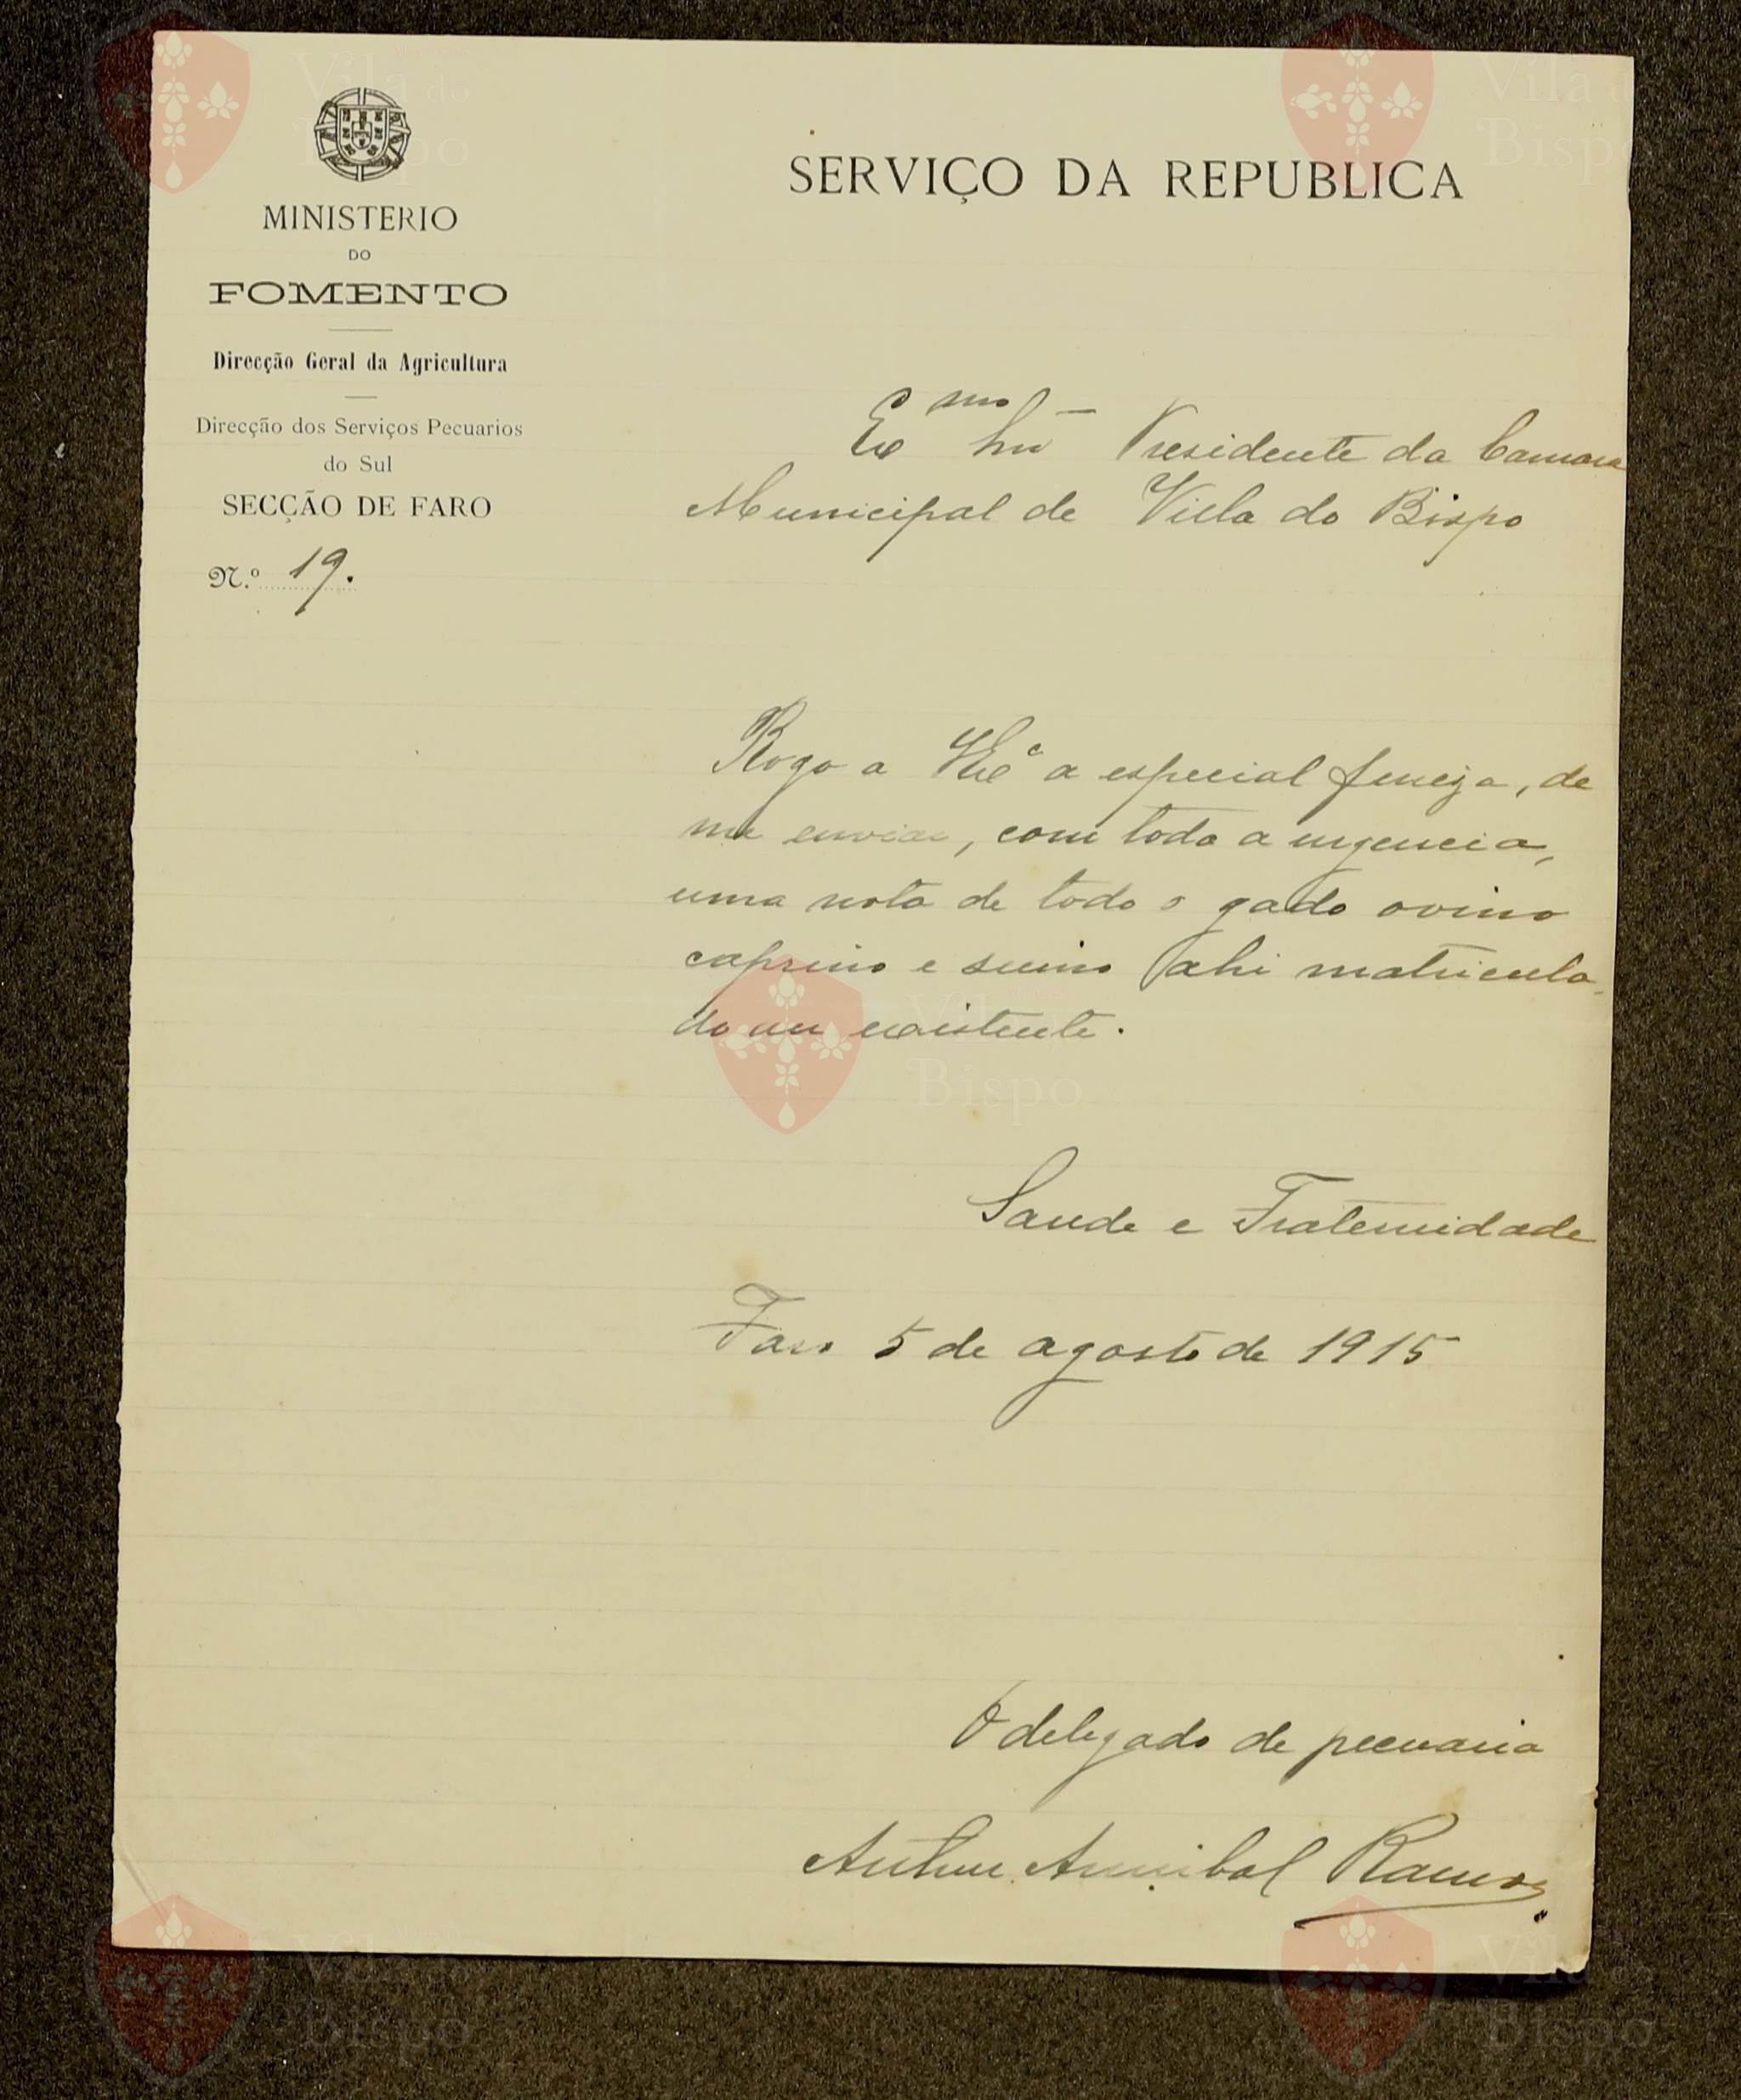 MINISTERIO
DO
FOMENTO
Direcção Geral da Agricultura
Direcção dos Serviços Pecuarios
do Sul
SECÇÃO DE FARO
N.º 19.
SERVIÇO DA REPUBLICA
Exmo Snr Presidente da Camara
Municipal de Villa do Bispo
Rogo a VExª a especial fineza, de
me enviar, com toda a urgencia,
uma nota de todo o gado ovino
caprino e suino ahi matricula-
do ou existente.
Saude e Fraternidade
Faro 5 de agosto de 1915
O delegado de pecuaria
Arthur Annibal Ramos
Vila do
Bispo
Vila do
Bispo
Vila do
Bispo
Vila do
Bispo
Vila do
Bispo